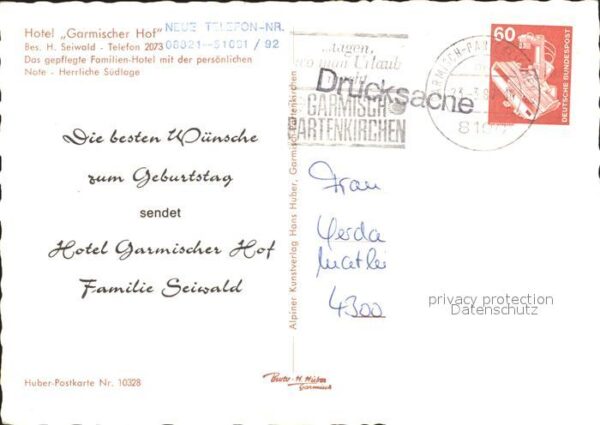 Hotel „Garmischer Hof"
Bes. H. Seiwald - Telefon 2073
Das gepflegte Familien-Hotel mit der persönlichen
Note - Herrliche Südlage
NEUE TELEFON-NR.
08821-51091 / 92
Die besten Wünsche
zum Geburtstag
sendet
Hotel Garmischer Hof
Familie Seiwald
Huber-Postkarte Nr. 10328
Alpiner Kunstverlag Hans Huber, Garmisch-Partenkirchen
...tagen,
wo man Urlaub
macht
GARMISCH
PARTENKIRCHEN
Drucksache
GARMISCH-PARTENKIRCHEN
60
DEUTSCHE BUNDESPOST
Frau
Gerda
4300
privacy protection
Datenschutz
Garmisch